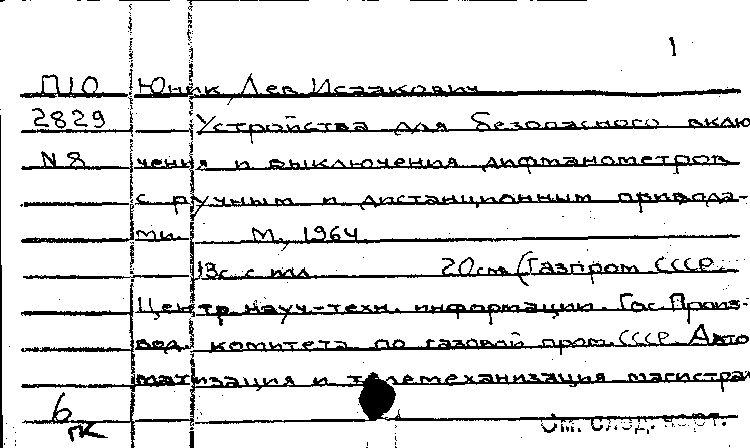 1
П10 Юник, Лев Исаакович
2829 Устройства для безопасного вклю
N8 чения и выключения дифманометров
с ручным и дистанционным привода-
ми. М., 1964.
13с. с ил. 20см (Газпром СССР.
Центр. науч-техн. информации. Гос. Произ-
вод. комитета по газовой пром. СССР. Авто
матизация и телемеханизация магистрал
6
гк См. след. карт.